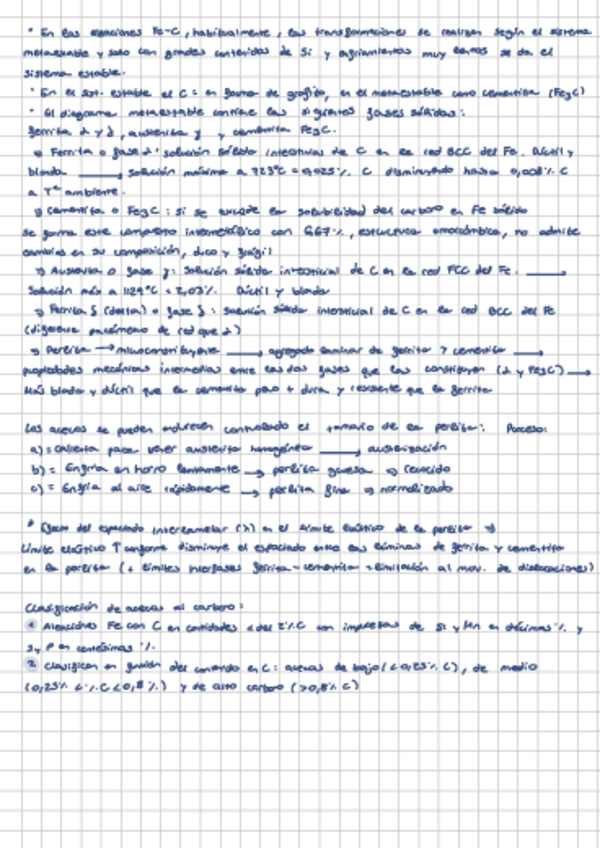 * En las aleaciones Fe-C, habitualmente, las transformaciones se realizan según el sistema
metaestable y solo con grandes contenidos de Si y enfriamientos muy lentos se da el
sistema estable.
* En el sist. estable el C = en forma de grafito, en el metaestable como cementita (Fe3C)
* El diagrama metaestable contiene las siguientes fases sólidas:
ferrita α y δ, austenita γ y cementita Fe3C.
→ Ferrita o fase α: solución sólida intersticial de C en la red BCC del Fe. Dúctil y
blanda → solución máxima a 723°C = 0,025% C disminuyendo hasta 0,008% C
a Tª ambiente.
→ Cementita o Fe3C: si se excede la solubilidad del carbono en Fe sólido
se forma este compuesto intermetálico con 6,67%, estructura ortorrómbica, no admite
cambios en su composición, duro y frágil
→ Austenita o fase γ: solución sólida intersticial de C en la red FCC del Fe. →
Solución máx a 1129°C = 2,03%. Dúctil y blanda
→ Ferrita δ (delta) o fase δ: solución sólida intersticial de C en la red BCC del Fe
(diferente parámetro de red que α)
→ Perlita → microconstituyente → agregado laminar de ferrita y cementita →
propiedades mecánicas intermedias entre las dos fases que las constituyen (α y Fe3C) →
Más blanda y dúctil que la cementita pero + dura y resistente que la ferrita
Los aceros se pueden endurecer controlando el tamaño de la perlita: Proceso:
a) = Calienta para tener austenita homogénea → austenización
b) = Enfría en horno lentamente → perlita gruesa → recocido
c) = Enfría al aire rápidamente → perlita fina → normalizado
* Efecto del espaciado interlamelar (λ) en el límite elástico de la perlita →
Límite elástico ↑ conforme disminuye el espaciado entre las láminas de ferrita y cementita
en la perlita (+ límites interfases ferrita-cementita = limitación al mov. de dislocaciones)
Clasificación de aceros al carbono:
1 Aleaciones Fe con C en cantidades < del 2% C con impurezas de Si y Mn en décimas % y
S y P en centésimas %.
2 Clasifican en función del contenido en C: aceros de bajo (<0,25% C), de medio
(0,25% < % C < 0,8%) y de alto carbono (>0,8% C)